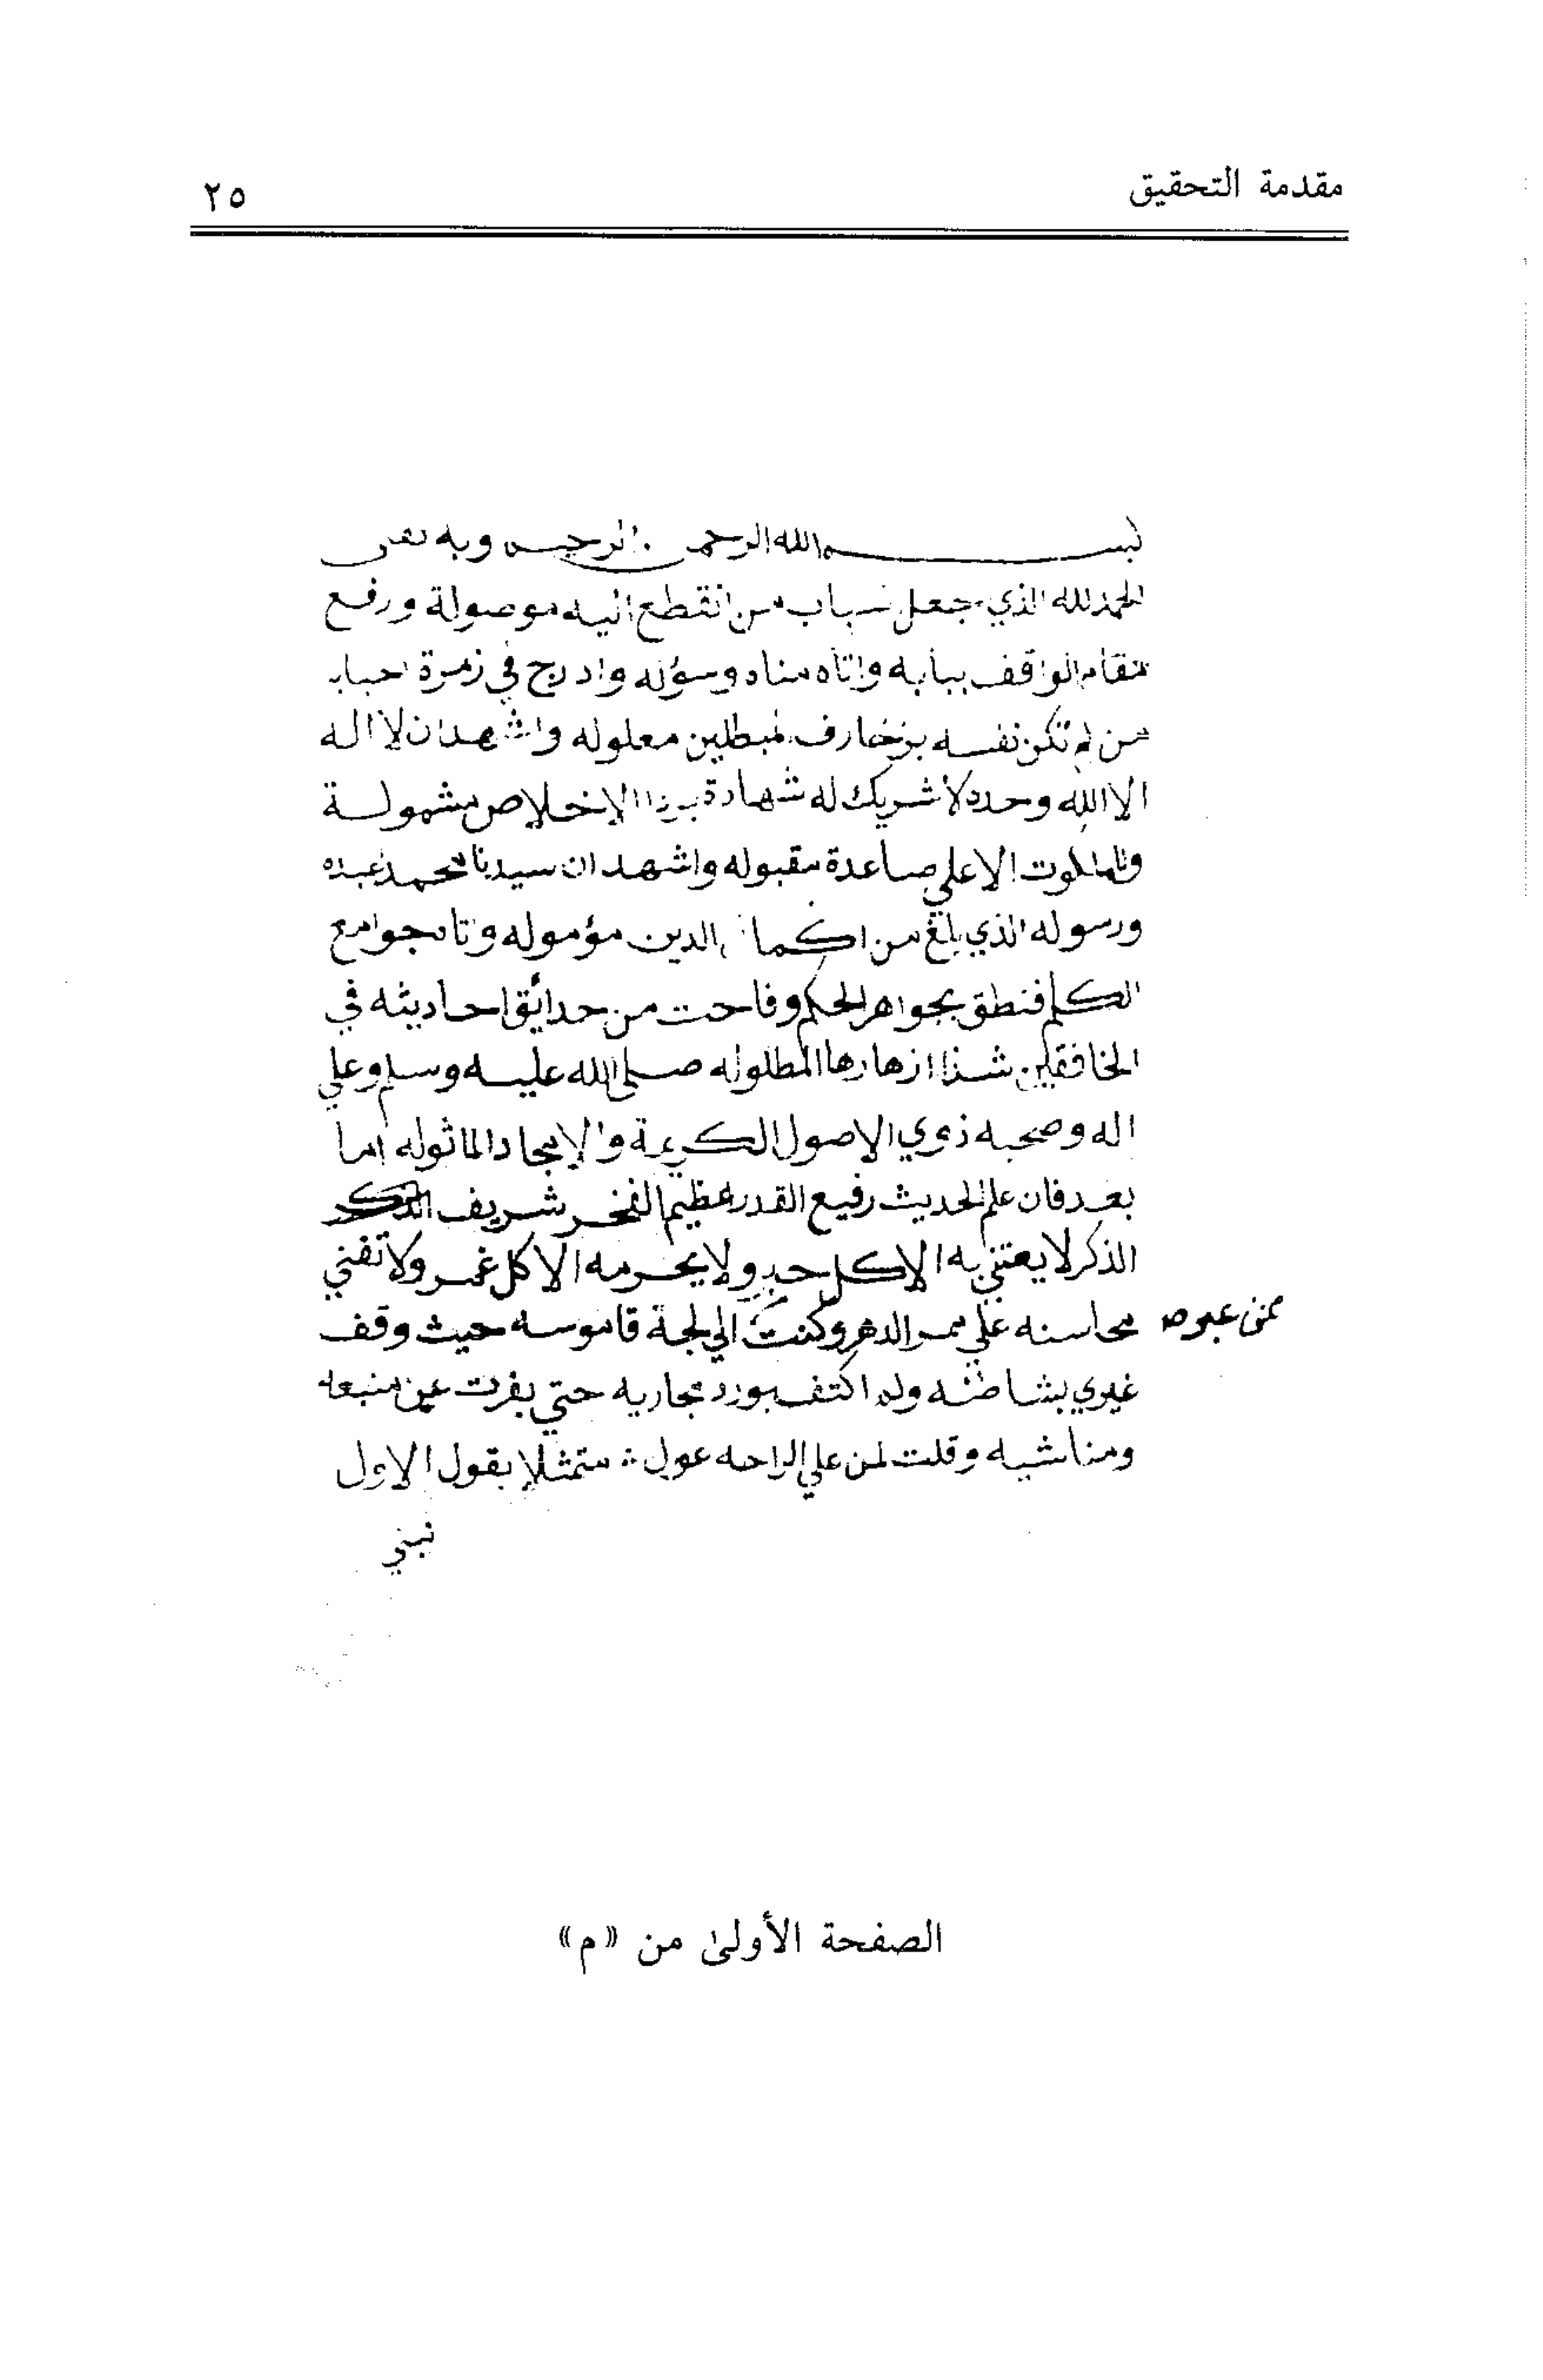 مقدمة التحقيق
٢٥
بسم الله الرحمن الرحيم وبه نقتي
الحمد لله الذي جعل سباب من انقطع اليه موصولة ورفع
مقام الواقف ببابه واتاه مناه وسؤله وادرج في زمرة احبابه
من لم تكن نفسه بزخارف لمبطلين معلوله واشهد ان لا اله
الا الله وحده لا شريك له شهادة الاخلاص مشمولة
الاعلي صاعدة مقبوله واشهد ان سيدنا محمد عبده
ورسوله الذي بلغ من اكمال الدين مؤموله جوامع
الكلم فنطق بجواهر الحكم وفاحت من حدائق احاديثه في
الخافقين شذا ازهارها المطلوله صلى الله عليه وسلم وعلي
اله وصحبه ذوي الاصول الكريمة والامجاد الماثوله اما
بعد فان علم الحديث رفيع القدر عظيم الفخر شريف
الذكر لا يعتني به الا كل حبر ولا يحرمه الا كل غمر ولا تفني
محاسنه علي ممر الدهر وكنت الي لجة قاموسه حيث وقف
غيري بشاطئه ولم اكتف بورد مجاريه حتي بقرت عن منبعه
ومناشيه وقلت لمن علي الراحه عول متمثلا بقول الاول
نبني
الصفحة الأولىٰ من «م»